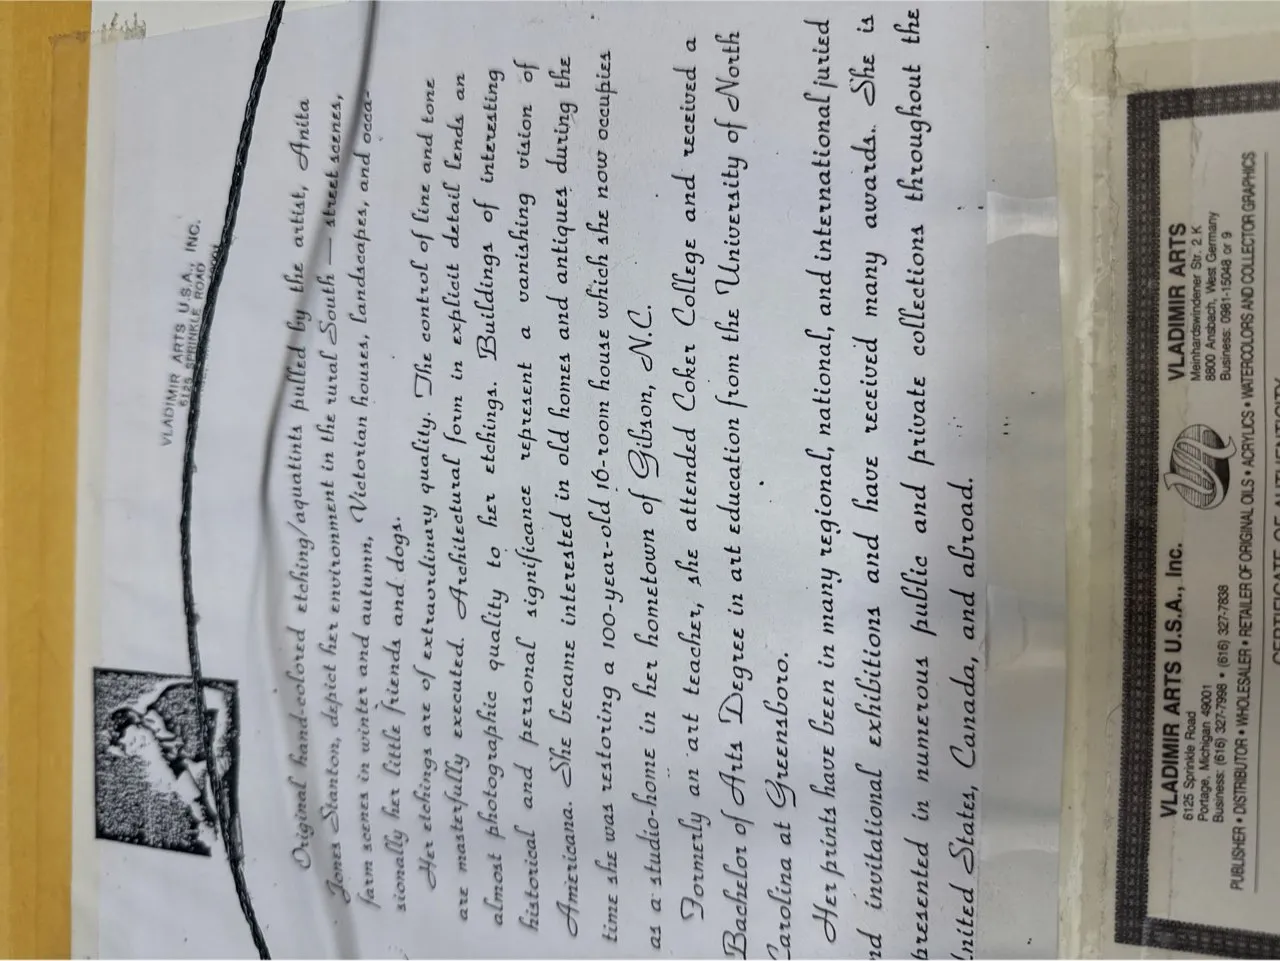 VLADIMIR ARTS U.S.A., INC.
6125 SPRINKLE ROAD
Original hand-colored etching/aquatints pulled by the artist, Anita
Jones Stanton, depict her environment in the rural South — street scenes,
farm scenes in winter and autumn, Victorian houses, landscapes, and occa-
sionally her little friends and dogs.
Her etchings are of extraordinary quality. The control of line and tone
are masterfully executed. Architectural form in explicit detail lends an
almost photographic quality to her etchings. Buildings of interesting
historical and personal significance represent a vanishing vision of
Americana. She became interested in old homes and antiques during the
time she was restoring a 100-year-old 16-room house which she now occupies
as a studio-home in her hometown of Gibson, N.C.
Formerly an art teacher, she attended Coker College and received a
Bachelor of Arts Degree in art education from the University of North
Carolina at Greensboro.
Her prints have been in many regional, national, and international juried
nd invitational exhibitions and have received many awards. She is
presented in numerous public and private collections throughout the
nited States, Canada, and abroad.
VLADIMIR ARTS U.S.A., Inc.
6125 Sprinkle Road
Portage, Michigan 49001
Business: (616) 327-7998 • (616) 327-7838
VLADIMIR ARTS
Meinhardswindener Str. 2 K
8800 Ansbach, West Germany
Business: 0981-15048 or 9
PUBLISHER • DISTRIBUTOR • WHOLESALER • RETAILER OF ORIGINAL OILS • ACRYLICS • WATERCOLORS AND COLLECTOR GRAPHICS
CERTIFICATE OF AUTHENTICITY